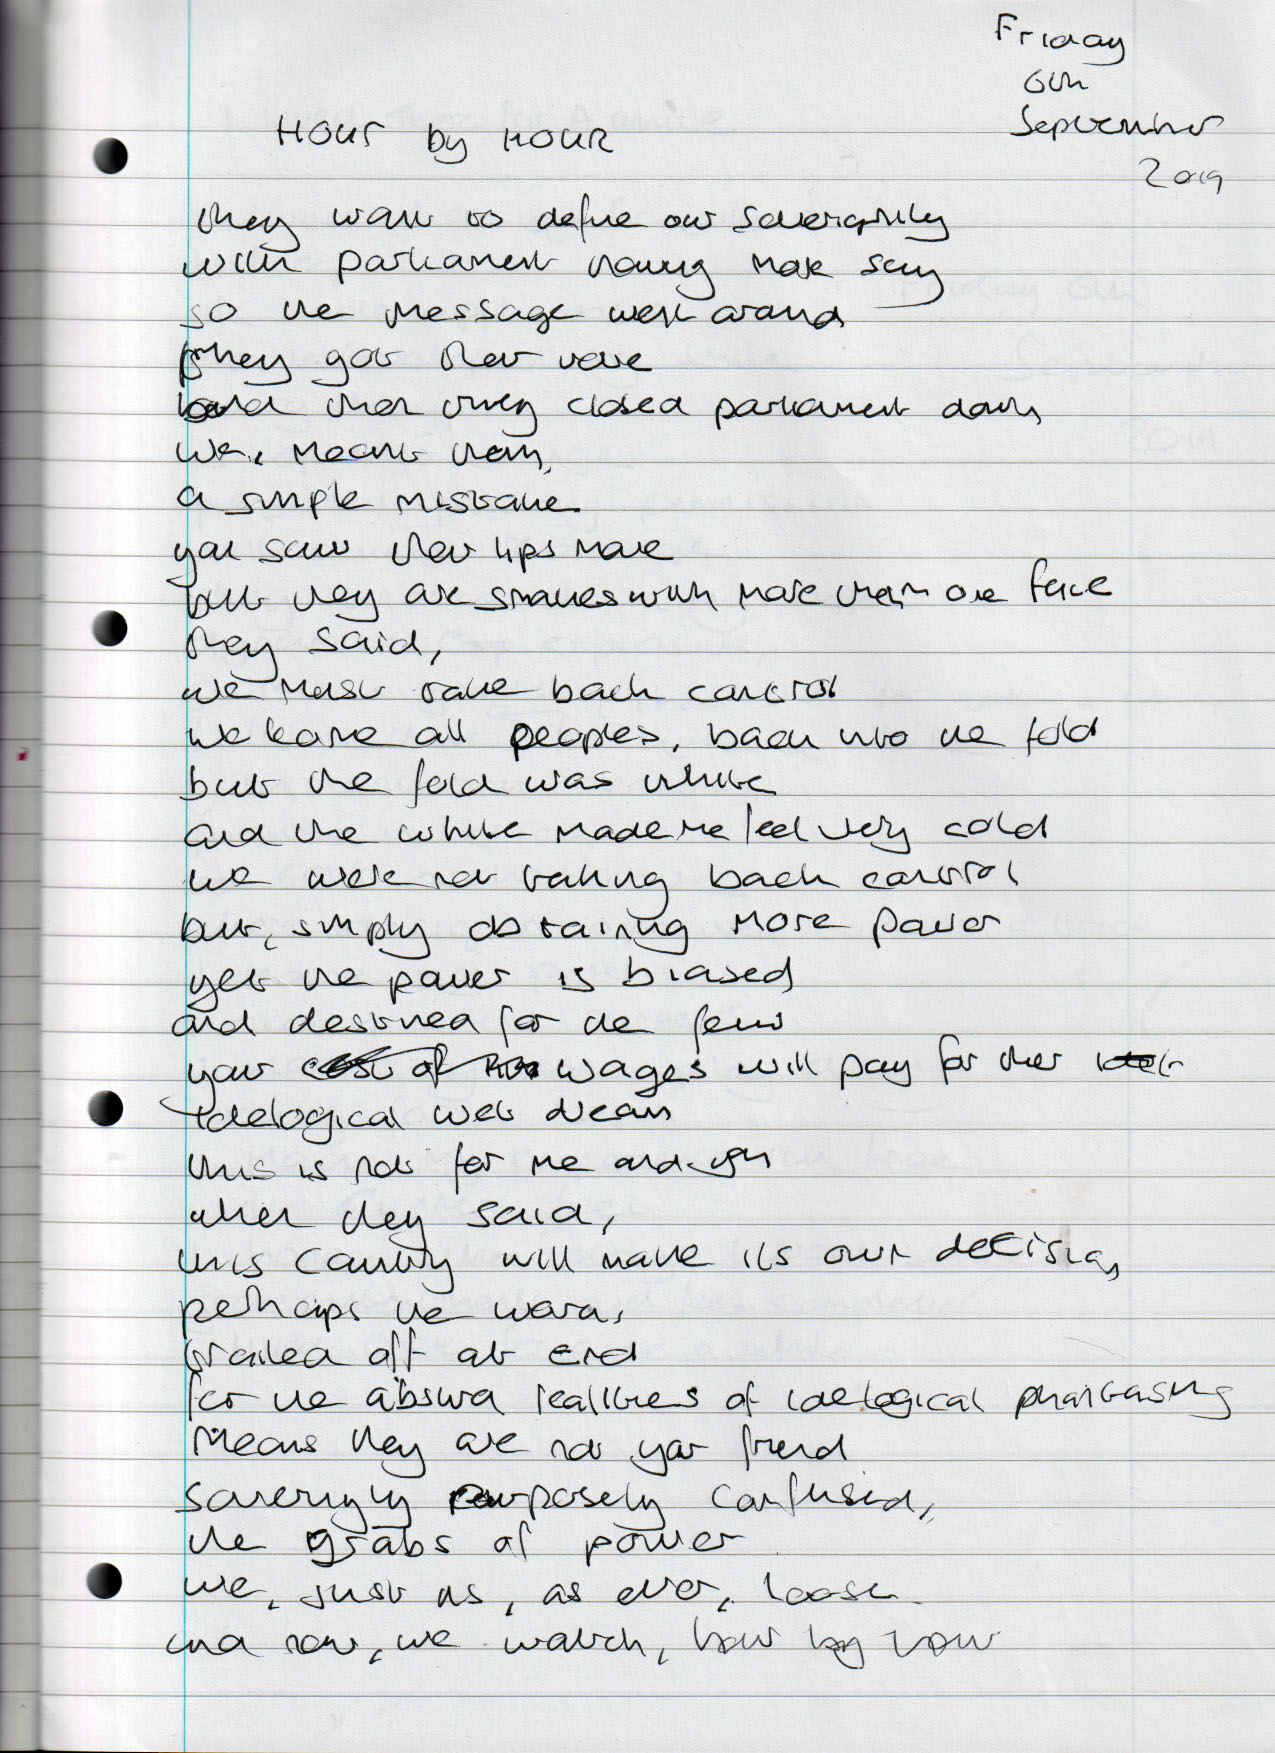 Friday
6th
September
2019
Hour by Hour
they want to define our soveriqnity
with parliament having more say
so the message went around
they got their vote
and then they closed parliament down
we, meant them,
a simple mistake
you saw their lips move
but they are snakes with more than one face
they said,
we must take back control
we leave all peoples, back into the fold
but the fold was white
and the white made me feel very cold
we were not taking back control
but, simply obtaining more power
yet the power is biased
and destined for the few
your wages will pay for their
idelogical wet dream
this is not for me and you
when they said,
this country will make its own decision,
perhaps the word,
trailed off at end
for the absurd realities of idelogical phantasing
means they are not your friend
soverignty purposely confused,
the grabs of power
we, just us, as ever, loose
and now, we watch, hour by hour